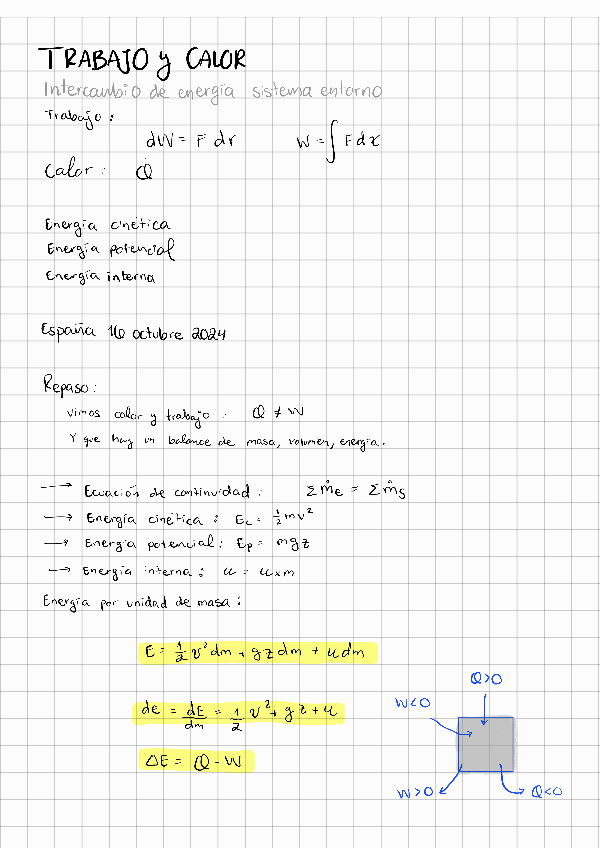 TRABAJO y CALOR
Intercambio de energía sistema entorno
Trabajo:
dW = F dr W = ∫ F dx
Calor: Q
Energía cinética
Energía potencial
Energía interna
España 16 octubre 2024
Repaso:
Vimos calor y trabajo: Q ≠ W
Y que hay un balance de masa, volumen, energía.
---> Ecuación de continuidad: Σṁe = Σṁs
--> Energía cinética: Ec = 1/2 mv²
--> Energía potencial: Ep = mgz
--> Energía interna: u = u×m
Energía por unidad de masa:
E = 1/2 v² dm + gz dm + u dm
de = dE/dm = 1/2 v² + gz + u
ΔE = Q - W
Q>0
W<0
W>0
Q<0